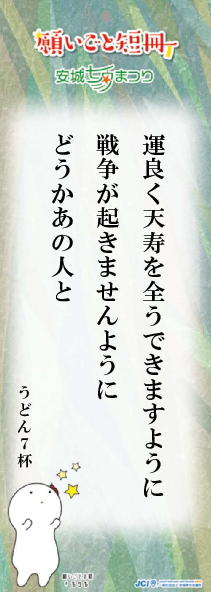 願いごと短冊
安城七夕まつり
運良く天寿を全うできますように
戦争が起きませんように
どうかあの人と
うどん7杯
JCI